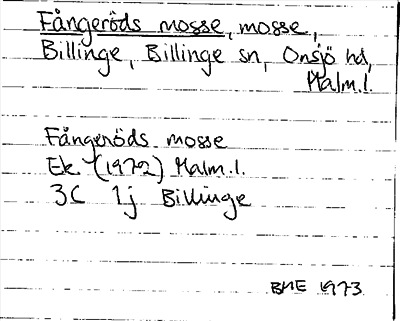 Fångeröds mosse, mosse,
Billinge, Billinge sn, Onsjö hd,
Malm.l.
Fångeröds mosse
Ek. (1972) Malm.l.
3C 1j Billinge
BHE 1973